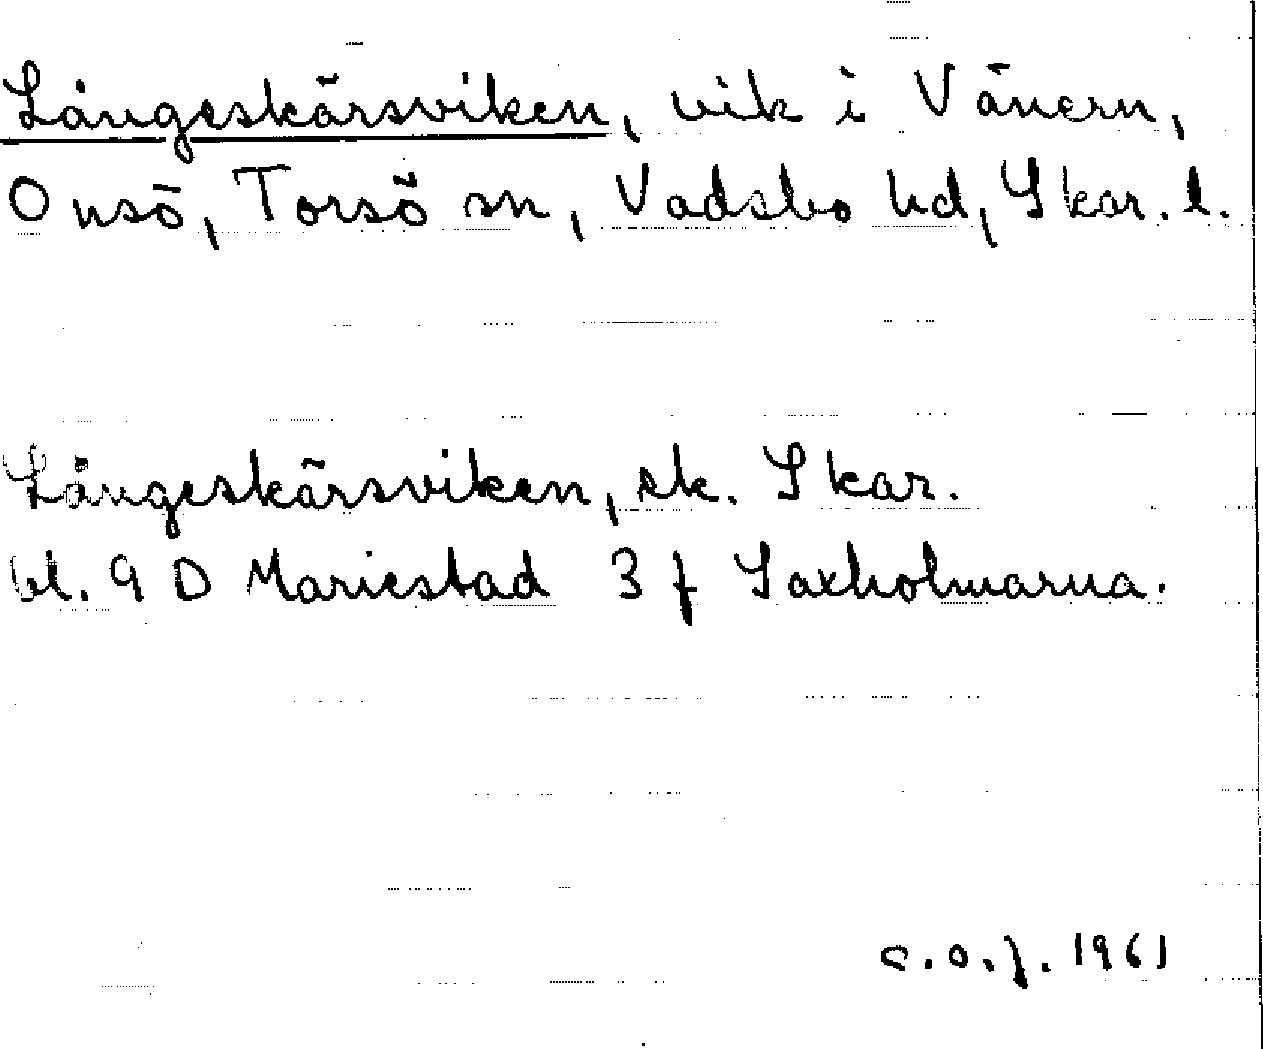 Långeskärsviken, vik i Vänern,
Onsö, Torsö sn, Vadsbo hd, Skar. l.
Långeskärsviken, ek. Skar.
bl. 9 D Mariestad 3 f Saxholmarna.
C.O.J. 1961